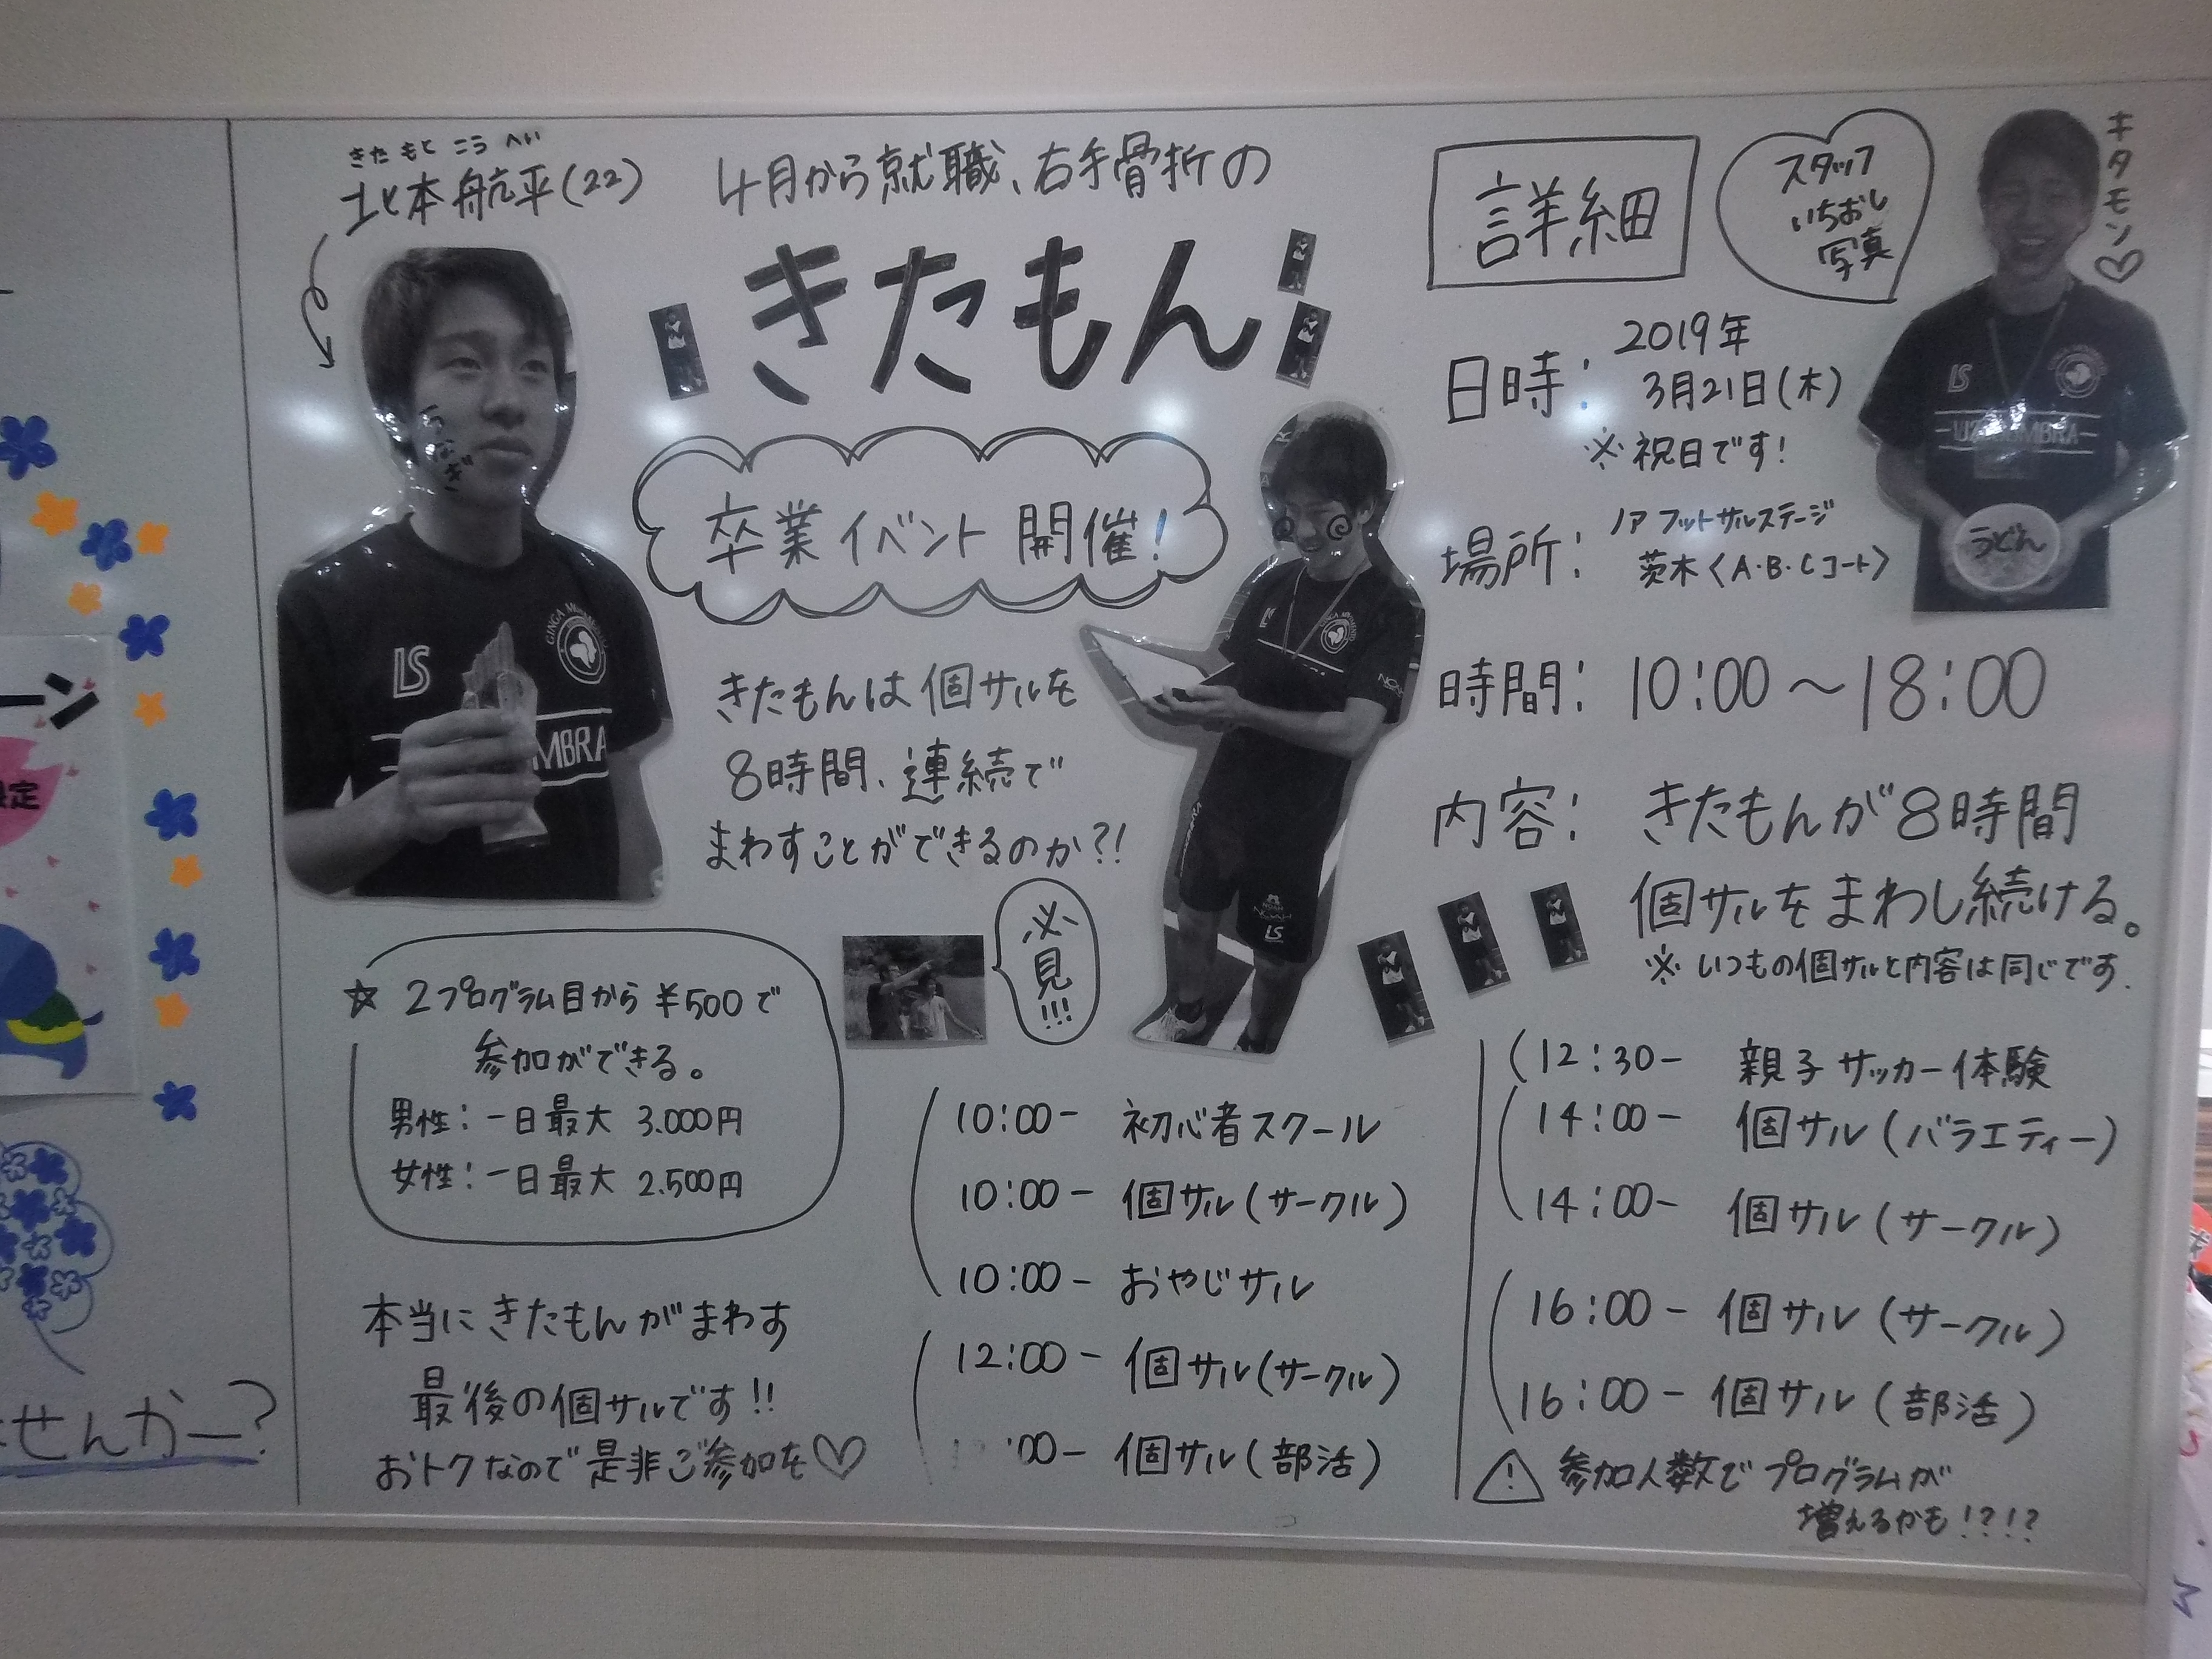 きた もと こう へい
北本航平(22)
4月から就職、右手骨折の
きたもん
卒業イベント開催!
きたもんは個サルを
8時間、連続で
まわすことができるのか?!
必見!!!
うなぎ
LS
GINGA
MBRA
LS
☆ 2プログラム目から ¥500で
参加ができる。
男性:一日最大 3.000円
女性:一日最大 2.500円
本当にきたもんがまわす
最後の個サルです!!
おトクなので是非ご参加を♡
10:00- 初心者スクール
10:00- 個サル(サークル)
10:00- おやじサル
12:00- 個サル(サークル)
:00- 個サル(部活)
詳細
スタッフ
いちおし
写真
キタモン♡
LS
うどん
日時: 2019年
3月21日(木)
※祝日です!
場所: ノアフットサルステージ
茨木〈A・B・Cコート〉
時間: 10:00~18:00
内容: きたもんが8時間
個サルをまわし続ける。
※いつもの個サルと内容は同じです.
12:30- 親子サッカー体験
14:00- 個サル(バラエティー)
14:00- 個サル(サークル)
16:00- 個サル(サークル)
16:00- 個サル(部活)
⚠ 参加人数でプログラムが
増えるかも!?!?
ーン
定
せんかー?